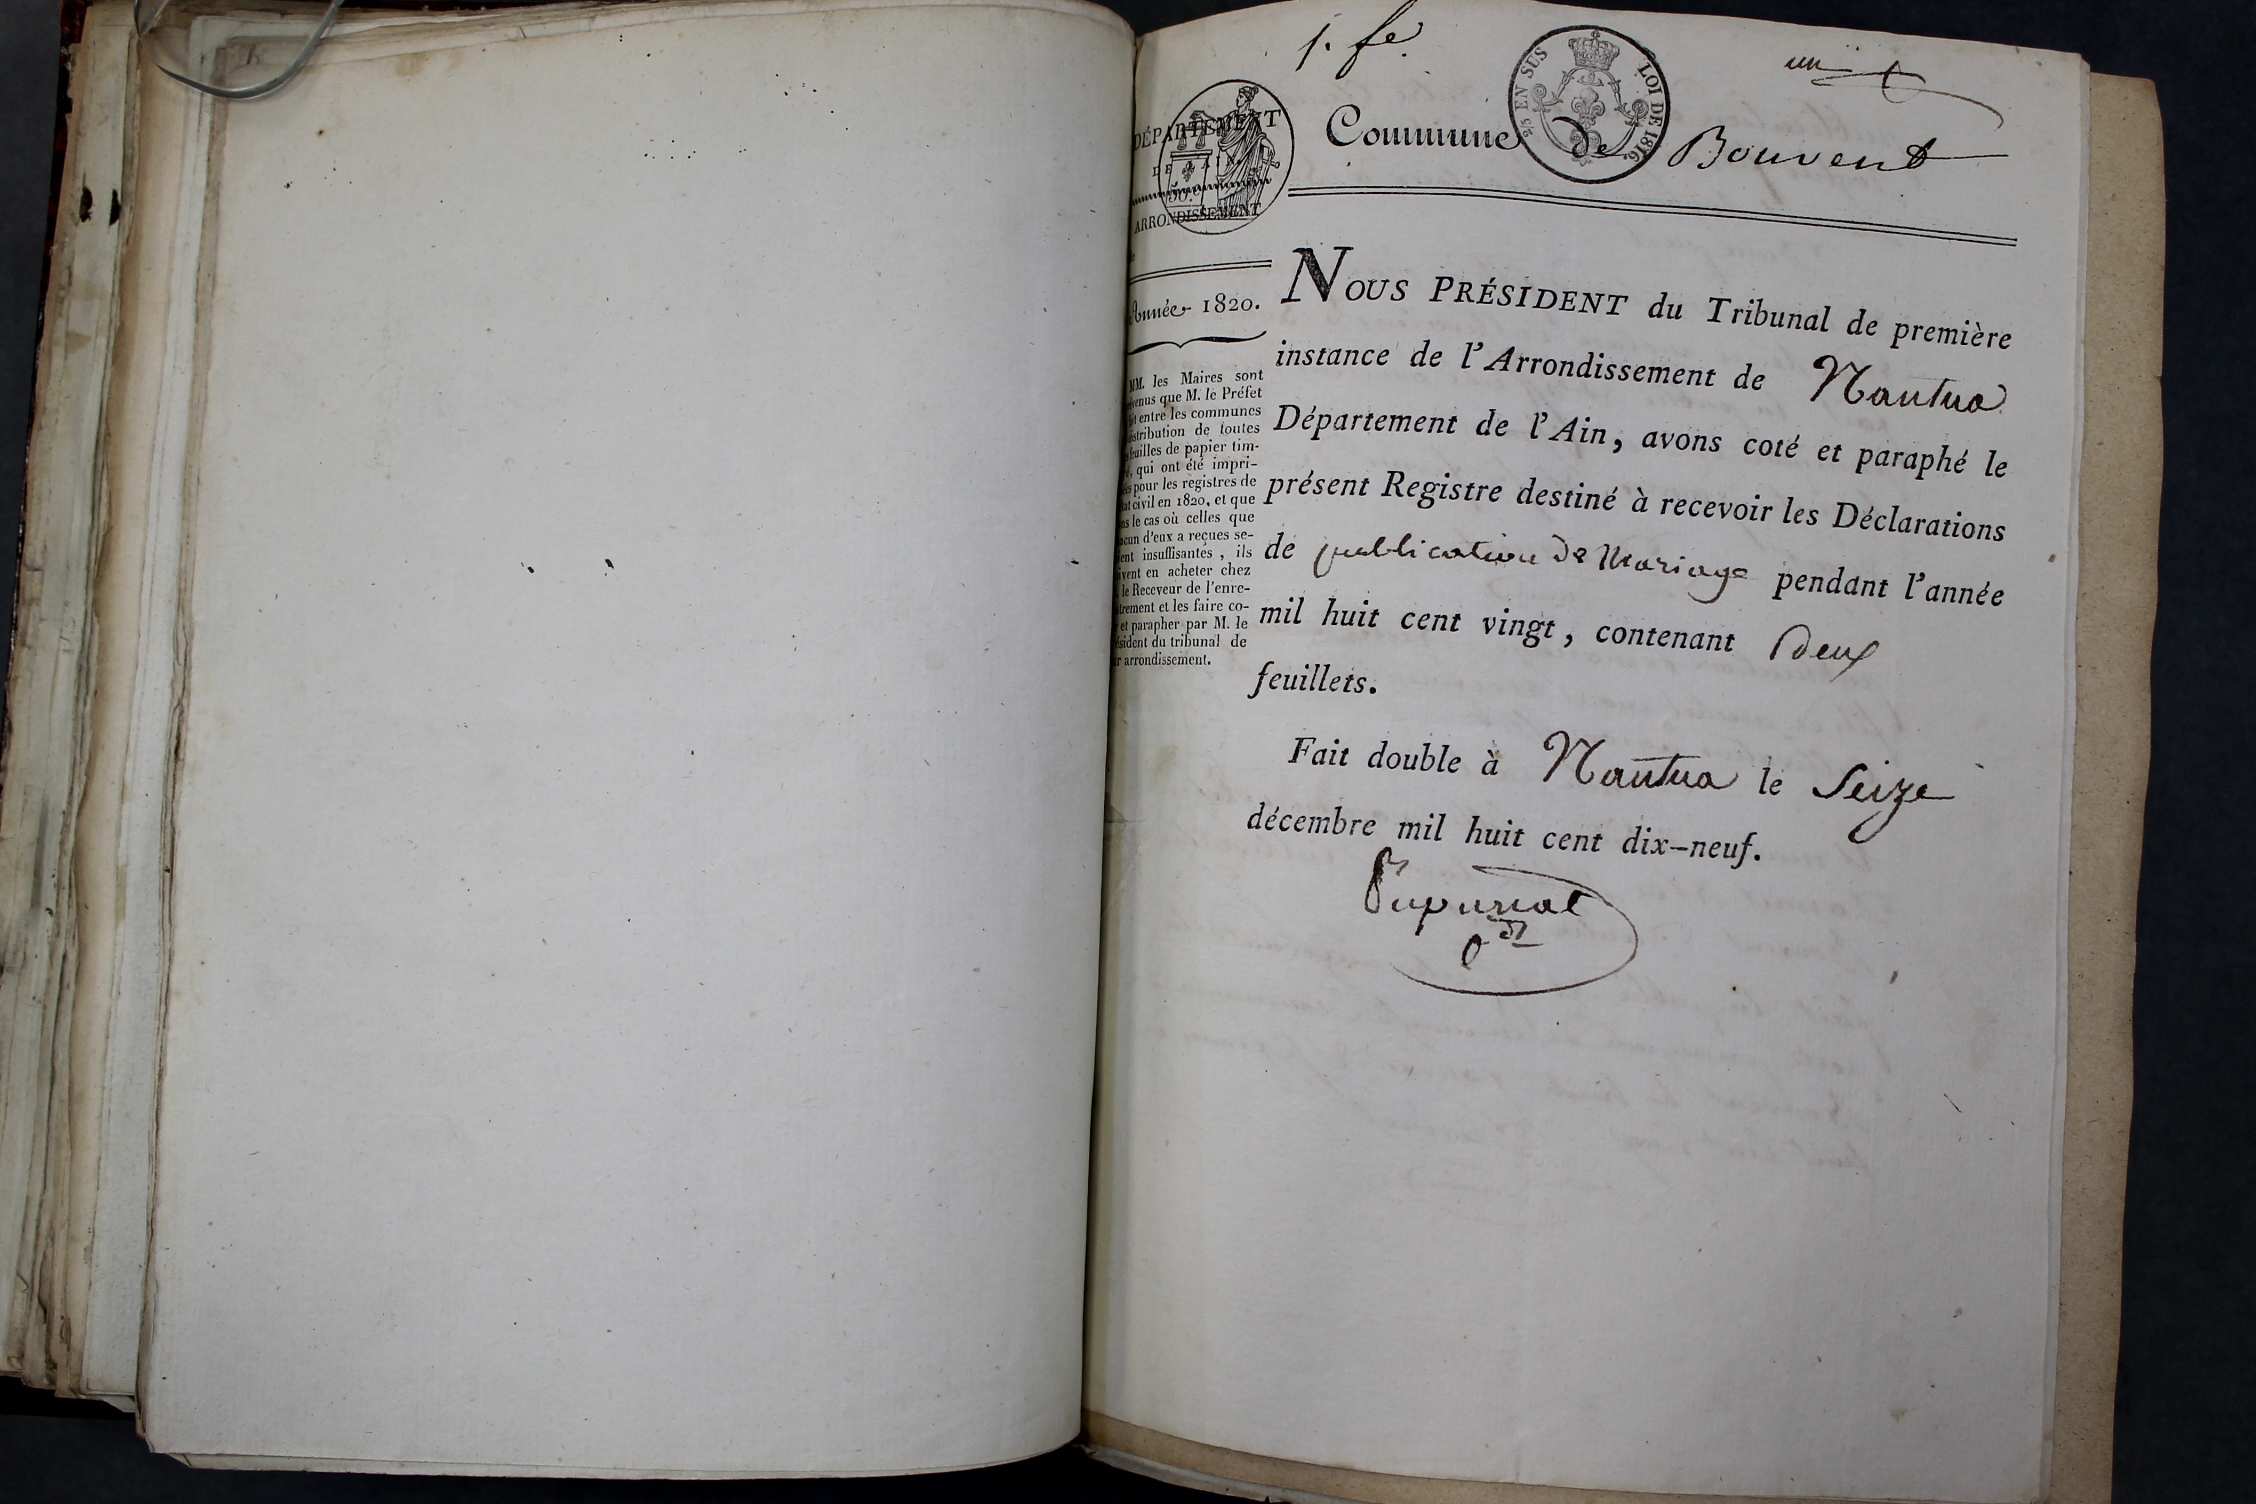 1. fe.
un
25 EN SUS
LOI DE 1816.
DÉPARTEMENT
DE
AIN.
50.
ARRONDISSEMENT
Commune de Bouvent
Année 1820.
MM. les Maires sont
que M. le Préfet
entre les communes
distribution de toutes
feuilles de papier tim-
qui ont été impri-
pour les registres de
civil en 1820, et que
le cas où celles que
d'eux a reçues se-
insuffisantes, ils
en acheter chez
le Receveur de l'enre-
et les faire co-
et parapher par M. le
du tribunal de
arrondissement.
NOUS PRÉSIDENT du Tribunal de première
instance de l'Arrondissement de Nantua
Département de l'Ain, avons coté et paraphé le
présent Registre destiné à recevoir les Déclarations
de publication de Mariage pendant l'année
mil huit cent vingt, contenant deux
feuillets.
Fait double à Nantua le Seize
décembre mil huit cent dix-neuf.